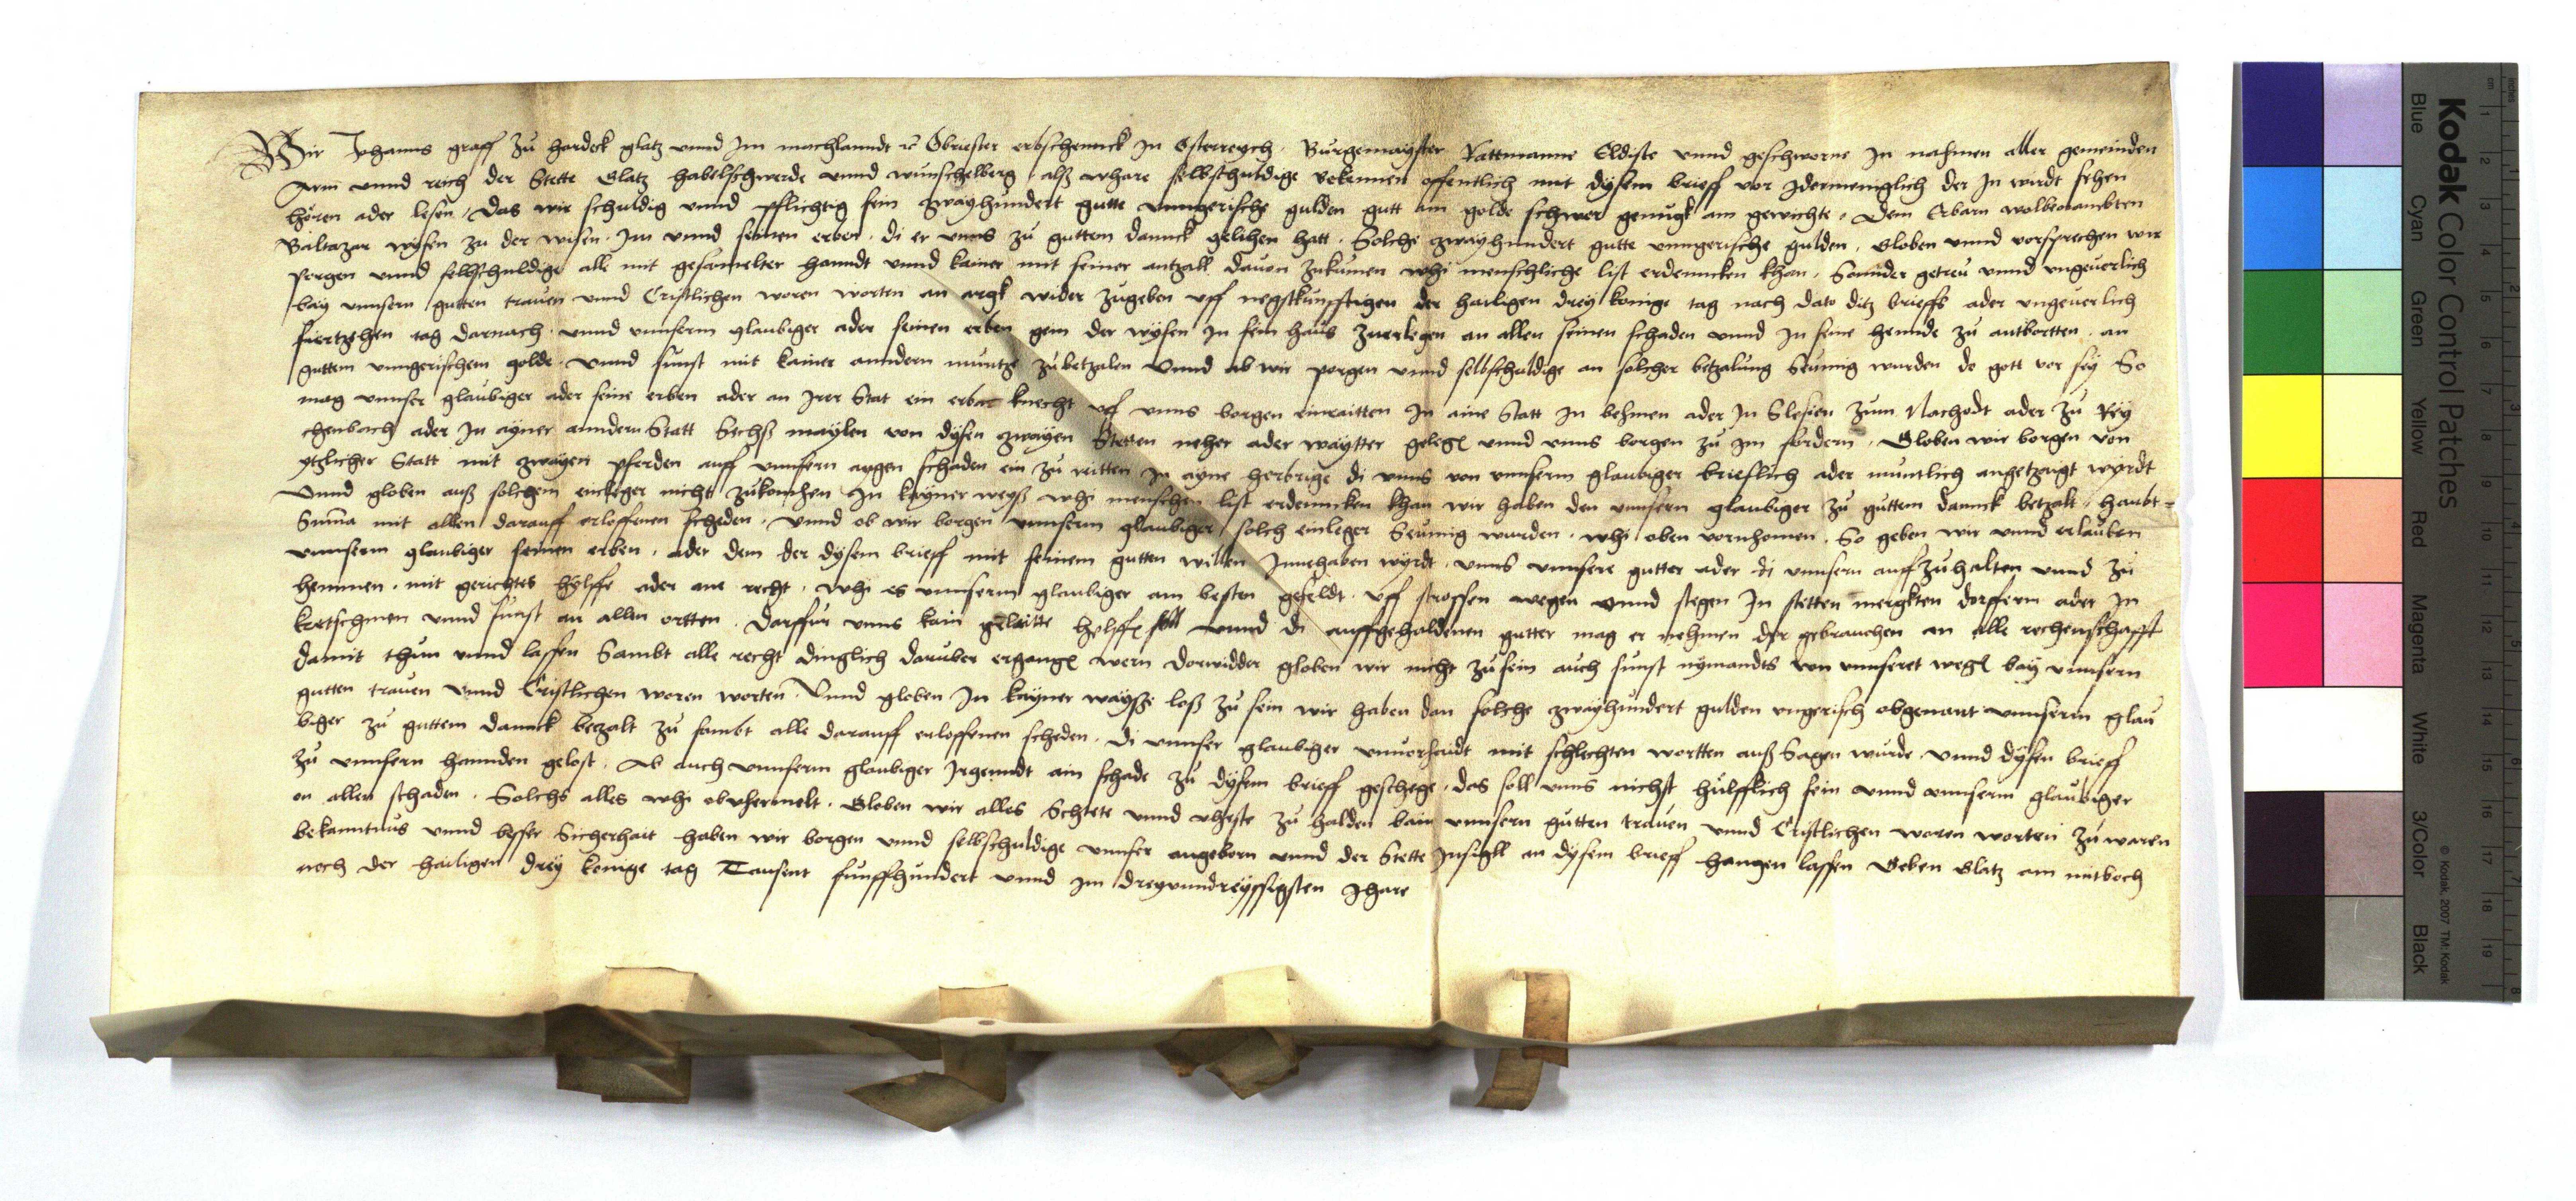 Wir Johanns graff zu hardeck glatz vnnd Im machlanndt etc Obrister erbschennck In Osterreych. Burgemayster Rattmanne Eldiste vnnd geschworne In nahmen aller gemeinden
Arm vnnd reich der Stette Glatz habelschwerde vnnd wunschelberg, alß whare selbschuldige bekennen offentlich mit dysem brieff vor Idermeniglich der In wirdt sehen
hören ader lesen, Das wir schuldig vnnd pflichtig sein zwayhundert gutte vnngerische gulden gutt am golde schwer genugk am gewichte, Dem Erbarn wolbenambten
Baltazar wysen zu der wisen. Im vnnd seinen erben. di er vnns zu guttem dannck gelihen hatt. Solche zwayhundert gutte vnngerische gulden. Globen vnnd vorsprechen wir
porgen vnnd selbschuldige alle mit gesamelter hanndt vnnd kainer mit seiner antzall dauon zukumen whi menschliche list erdenncken khan. Sonnder getreu vnnd vngeuerlich
bay vnnsern gutten trauen vnnd Cristlichen woren worten an argk wider zugeben vff negstkunfftigen der hailigen drey konige tag nach dato ditz brieffs ader vngeuerlich
fiertzehen tag darnach. vnnd vnnserm glaubiger ader seinen erben gem der wysen In sein haus zuerlegen an allen seinen schaden vnnd In seine hennde zu antbortten. an
guttem vnngerischem golde. vnnd sunst mit kainer anndern muntze zubetzalen Vnnd ab wir porgen vnnd selbschuldige an solcher betzalung seumig wurden do gott vor sey So
mag vnnser glaubiger ader seine erben ader an Irer Stat ein erbar knecht vff vnns borgen einraitten In aine Statt In behmen ader In Slesien zum Nachodt ader zu Rey
chenbach ader In ayner anndern Statt Sechß maylen von dysen zwayen Stetten neher ader waytter gelegen vnnd vnns borgen zu im fordern. Globen wir borgen von
ytzlicher Statt mit zwayen pferden auff vnnsern aygen schaden ein zu reitten In ayne herbrige di vnns von vnnserm glaubiger brieflich ader muntlich angetzeigt wyrdt
Vnnd globen auß solchem einleger nicht zukomhen In kayner weyß whi menschen list erdenncken khan wir haben den vnnsern glaubiger zu guttem dannck betzalt, haubt-
Suma mit allen darauff erloffenen scheden. Vnnd ob wir borgen vnnserm glaubiger solch einleger Seumig wurden. whi oben vornhomen. So geben wir vnnd erlauben
vnnserm glaubiger seinen erben. ader dem der dysem brieff mit seinem gutten willen Innehaben wyrdt. vnns vnnsere gutter ader di vnnsern auffzuhalten vnnd zu
hemmen. mit gerichtes hylffe ader ane recht. whi es vnnserm glaubiger am besten gefeldt. vff strossen wegen vnnd stegen In stetten mergkten dorffern ader In
kretschmen vnnd sunst an allen ortten. Darffur vnns kain gelaitte helffen soll vnnd di auffgehaldenen gutter mag er nehmen der gebrauchen an alle rechenschafft
damit thun vnnd lassen Sambt alle recht dinglich daruber ergangen wern dorwidder globen wir nicht zu sein auch sunst nymandts von vnnseret wegen bay vnnsern
gutten trauen vnnd Cristlichen woren worten Vnnd globen In kayner wayße loß zu sein wir haben dan solche zwayhundert gulden vngerisch obgenant vnnserm glau
biger zu guttem dannck bezalt zu sambt alle darauff erloffenen scheden. di vnnser glaubiger vnuorhaidt mit schlechten wortten auß Sagen wurde. vnnd dysen brieff
zu vnnsern hannden gelost. Ab auch vnnserm glaubiger Irgenndt ain schade zu dysem brieff geschege. das soll vnns nichst hulfflich sein vnnd vnnserm glaubiger
on allen schaden. Solchs alles whi obuhermelt. Globen wir alles Schtete vnnd vheste zu halden bain vnnsern gutten trauen vnnd Cristlichen woren worten zu waren
bekanntnus vnnd besser Sicherhait haben wir borgen vnnd selbschuldige vnnser angeborn vnnd der Stette Insigell an dysem brieff hangen lassen Geben Glatz am mitboch
noch der hailigen drey konige tag Tausent funffhundert vnnd Im dreyunndreyssigsten Ihare
Kodak Color Control Patches
Blue Cyan Green Yellow Red Magenta White 3/Color Black
© Kodak, 2007 TM: Kodak
inches 1 2 3 4 5 6 7 8
cm 1 2 3 4 5 6 7 8 9 10 11 12 13 14 15 16 17 18 19